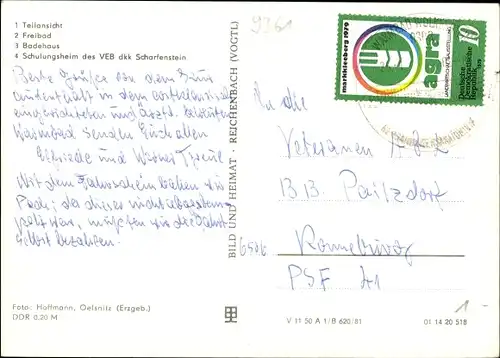 1 Teilansicht
2 Freibad
3 Badehaus
4 Schulungsheim des VEB dkk Scharfenstein
Beste Grüße von dem Kur
aufenthalt in dem
eingerichteten und
Warmbad senden Euch allen
Elfriede und Werner
Mit dem Fahrschein hatten wir
Pech, da dieser nicht abgestem-
pelt war, mußten wir die Fahrt
selbst bezahlen.
Foto: Hoffmann, Oelsnitz (Erzgeb.)
DDR 0,20 M
BILD UND HEIMAT · REICHENBACH (VOGTL)
markkleeberg 1979
agra
LANDWIRTSCHAFTSAUSSTELLUNG
Deutsche Demokratische Republik
10
An die
Veteranen
BB Paitzdorf
Ronneburg
PSF 41
6506
V 11 50 A 1/B 620/81
01 14 20 518
1